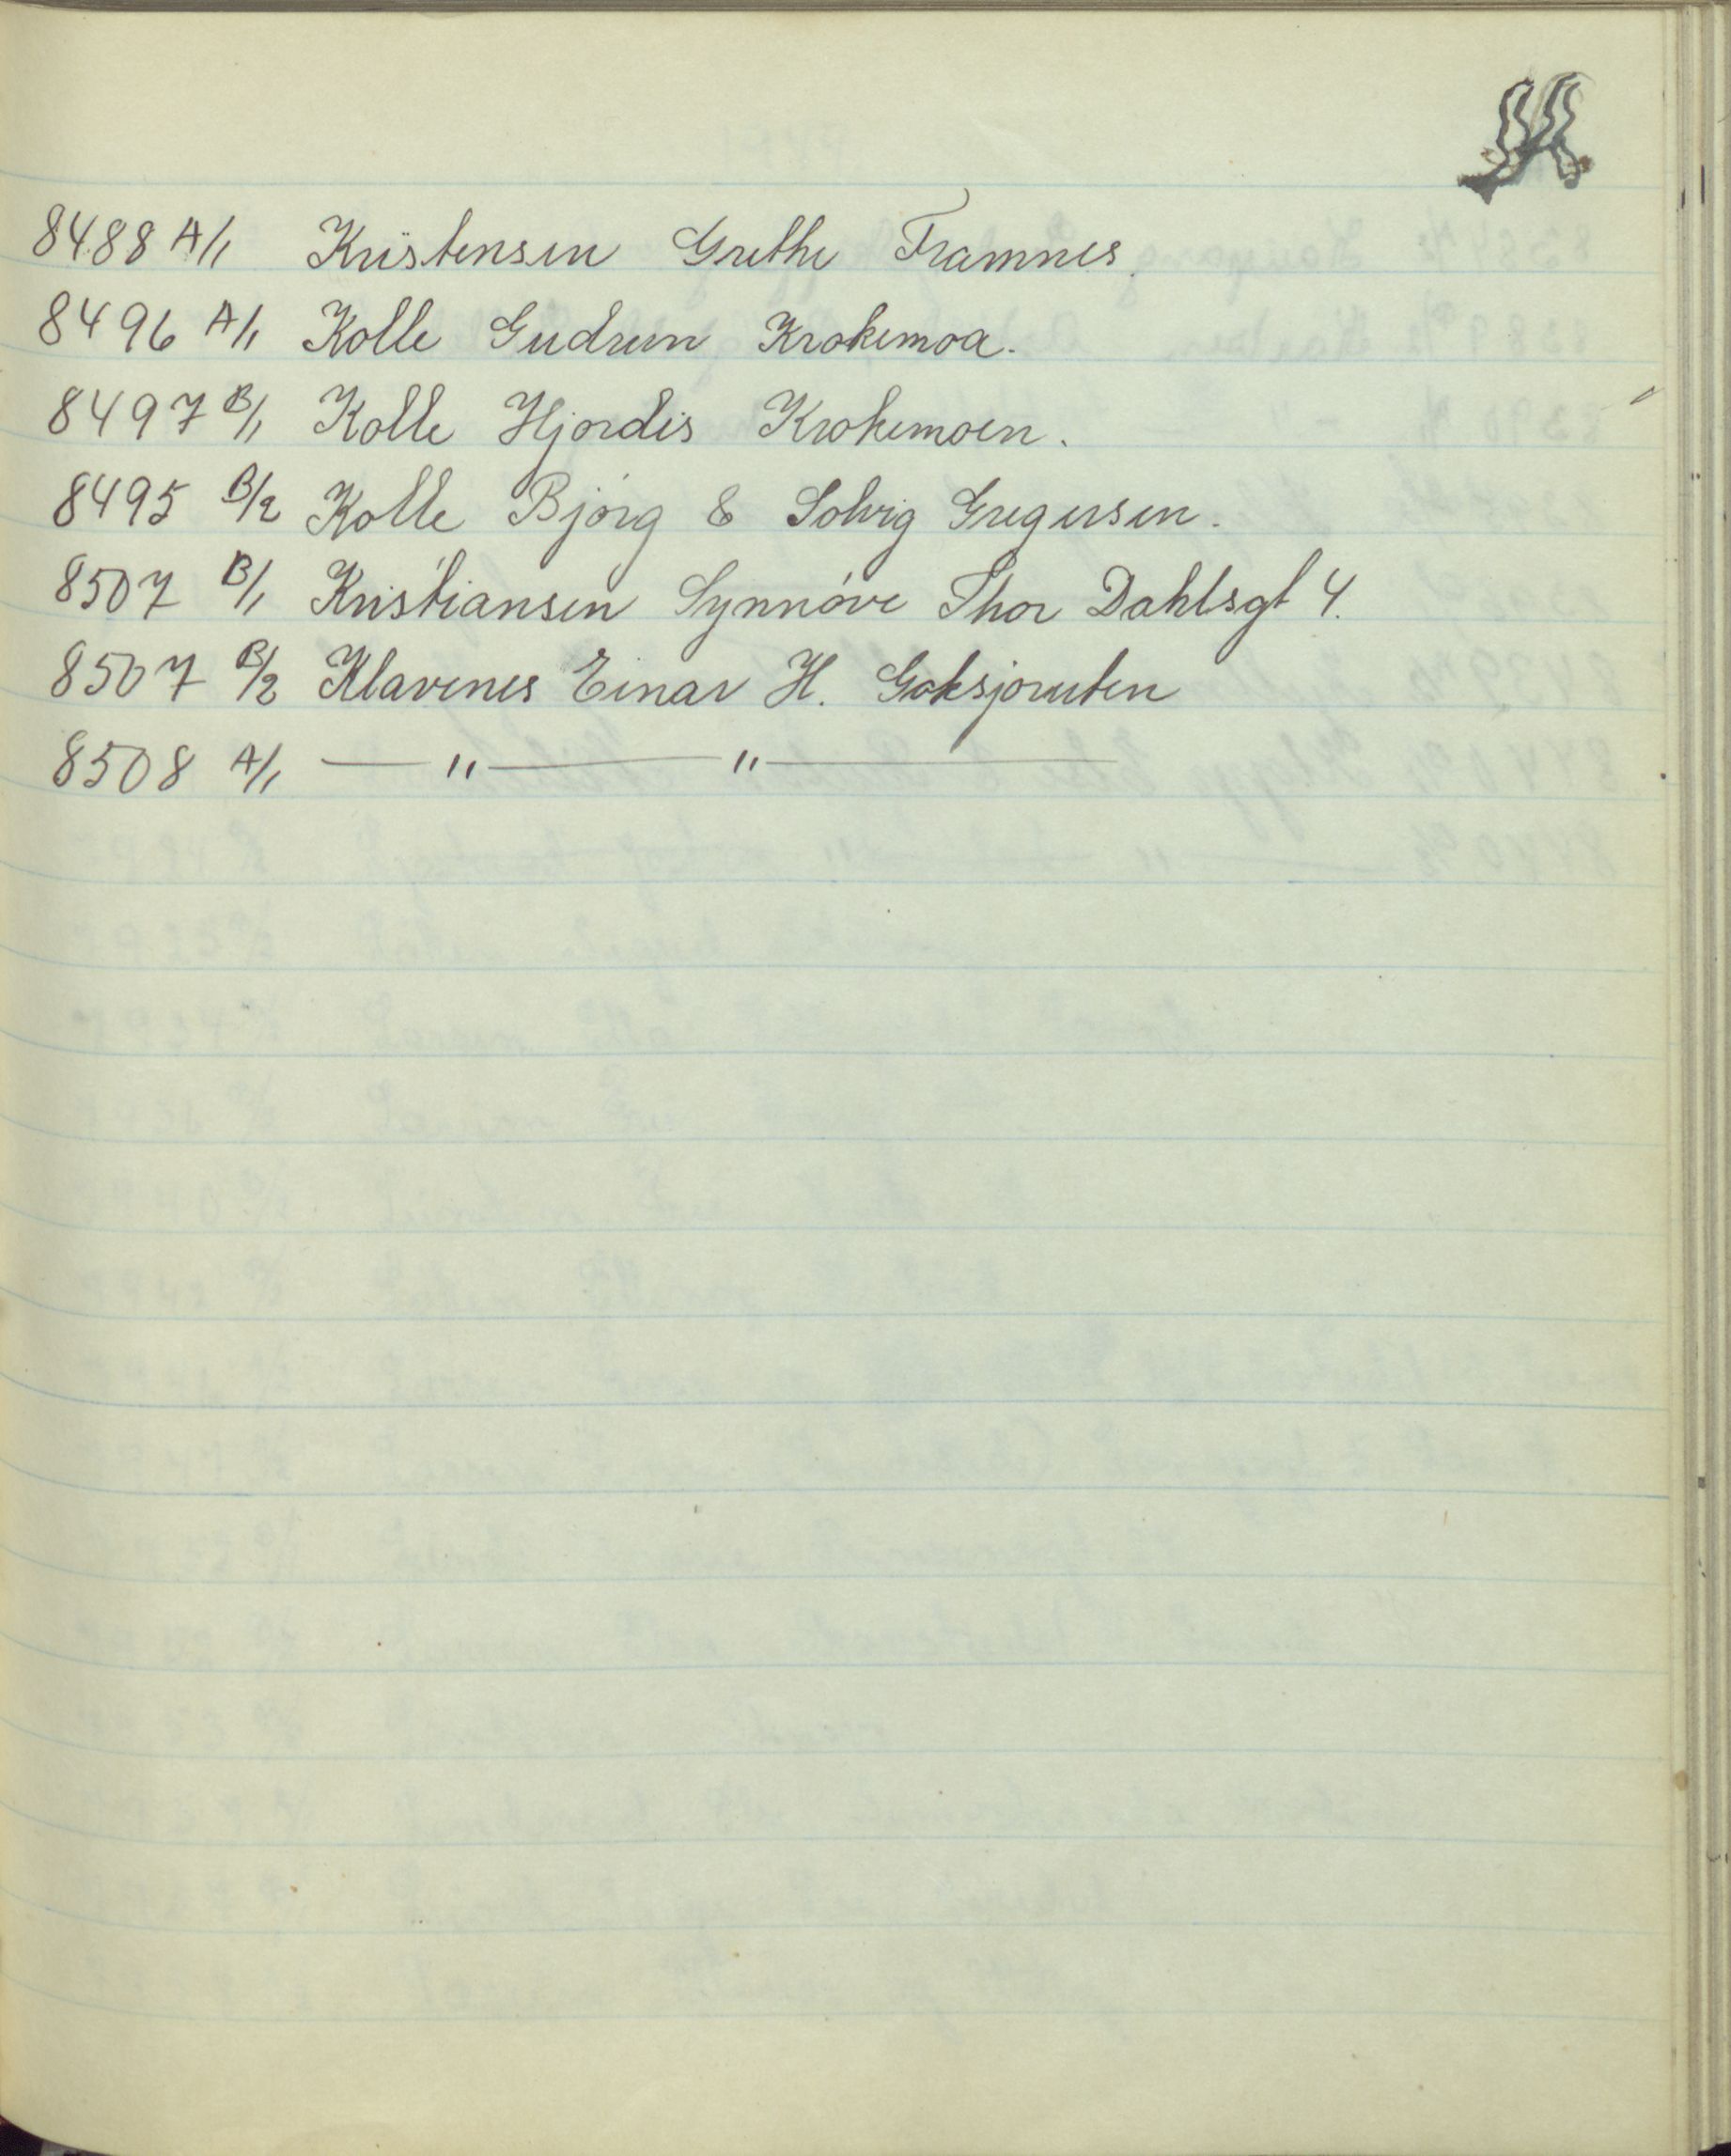 8488 A/1 Kristensen Grethe Framnes.
8496 A/1 Kolle Gudrun Krokemoa.
8497 B/1 Kolle Hjordis Krokemoen.
8495 B/2 Kolle Bjørg & Solvig Gregersen.
8507 B/1 Kristiansen Synnøve Thor Dahlsgt 4.
8507 B/2 Klavenes Einar H. Goksjoruten
8508 A/1 — " — " —